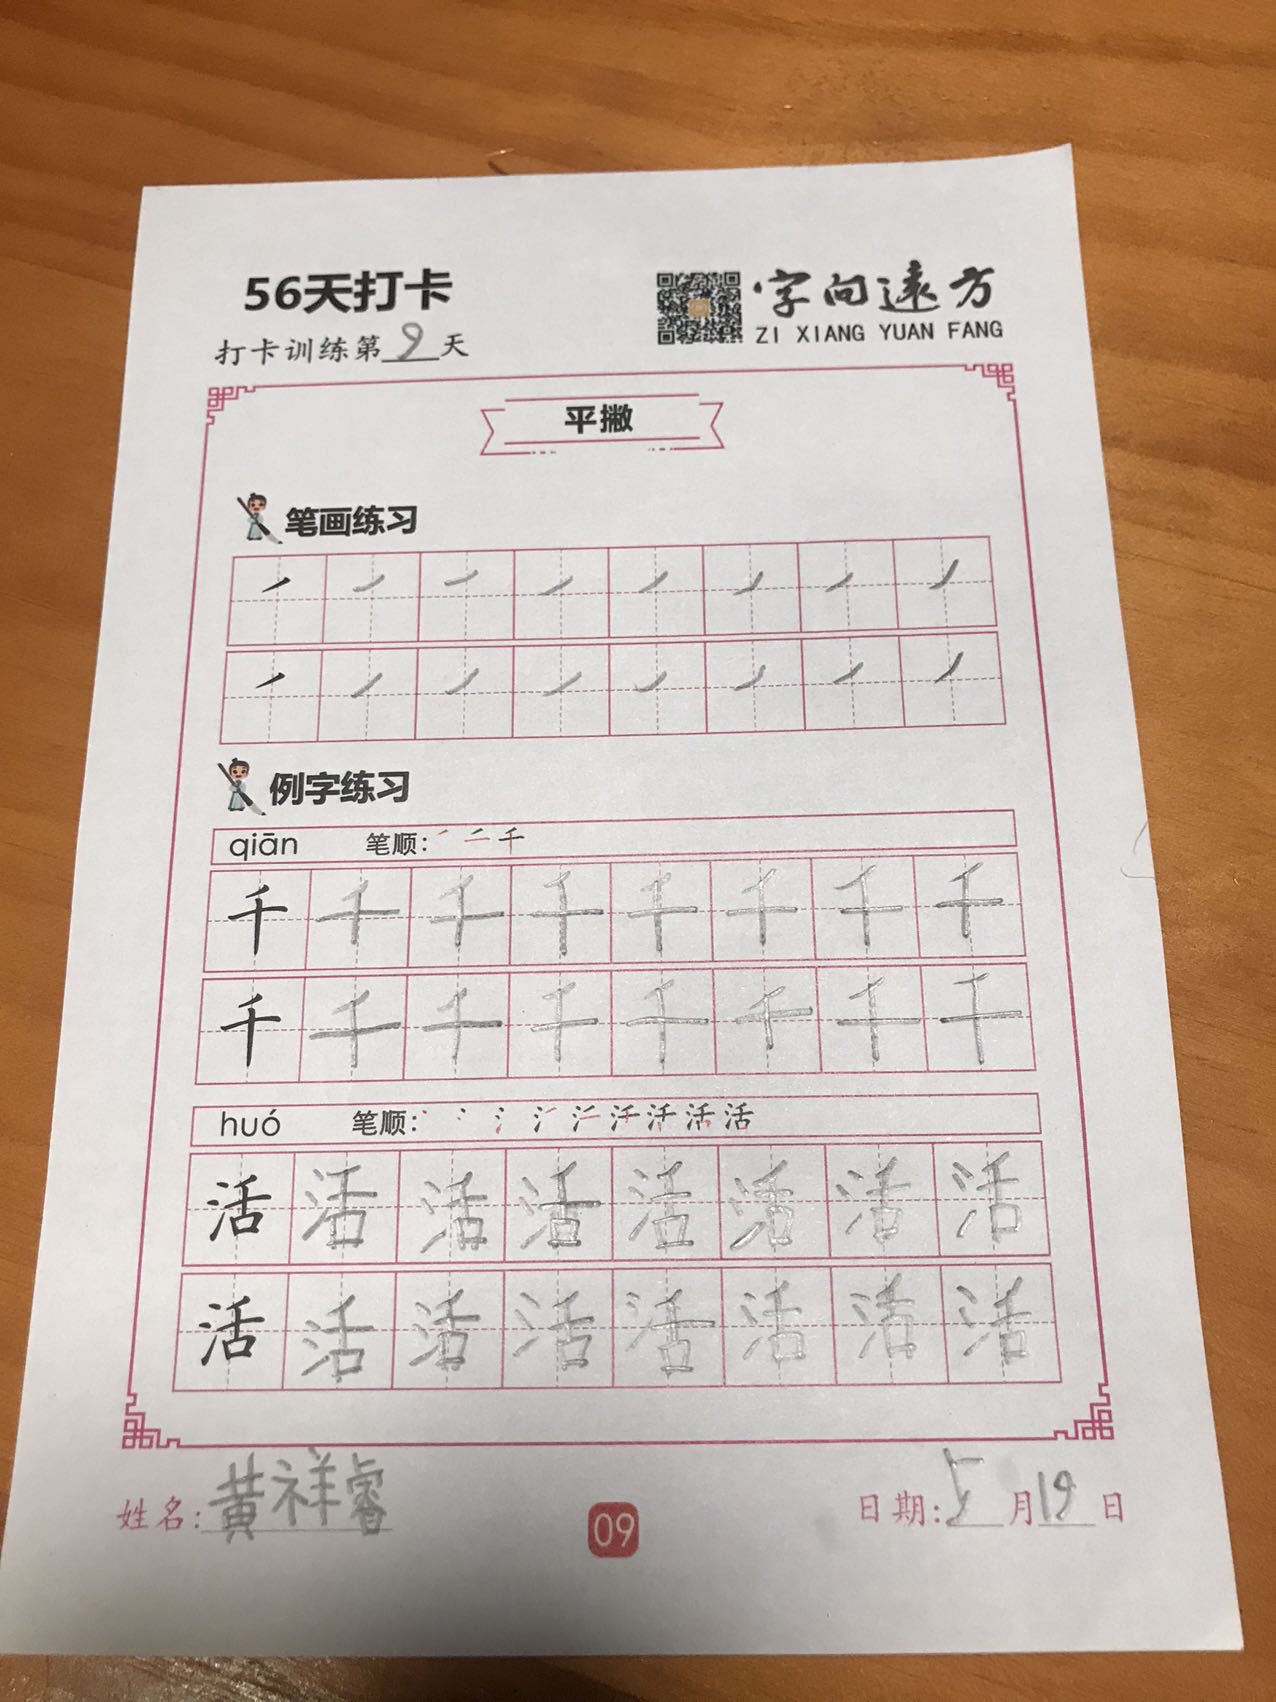 56天打卡
字向远方
ZI XIANG YUAN FANG
打卡训练第9天
平撇
笔画练习
例字练习
qiān 笔顺: 千
千 千 千 千 千 千 千 千
千 千 千 千 千 千 千 千
huó 笔顺: 活 活 活 活
活 活 活 活 活 活 活 活
活 活 活 活 活 活 活 活
姓名: 黄祥睿
09
日期: 5月19日